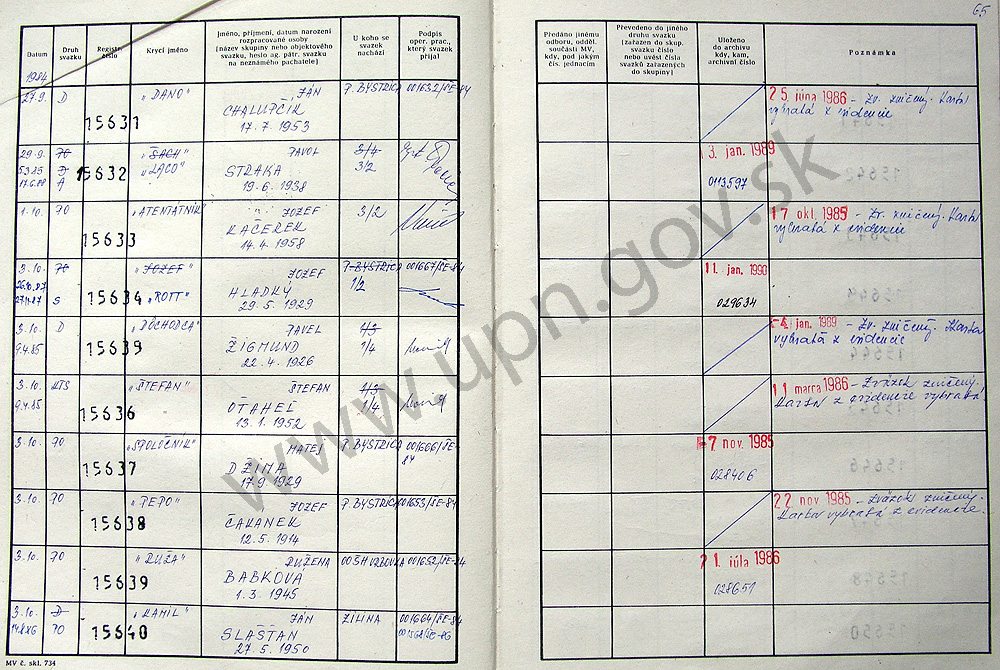 65
Datum
Druh svazku
Registr. číslo
Krycí jméno
Jméno, příjmení, datum narození
rozpracované osoby
(název skupiny nebo objektového
svazku, heslo ag. pátr. svazku
na neznámého pachatele)
U koho se
svazek
nachází
Podpis
oper. prac.,
který svazek
přijal
Předáno jinému
odboru, odděl.
součásti MV,
kdy, pod jakým
čís. jednacím
Převedeno do jiného
druhu svazku
(zařazen do skup.
svazku číslo
nebo uvést čísla
svazků zařazených
do skupiny)
Uloženo
do archivu
kdy, kam,
archivní číslo
Poznámka
1984
27.9. D "DANO" JÁN P. BYSTRICA 001632/ŠE-84
15631 CHALUPČÍK
17. 7. 1953
25. júna 1986 - Zv. zničený. Karta
vybratá z evidencie
29.9. PO "ŠACH" PAVOL 3/4
5.3.85 D 15632 "LACO" STRAKA 3/2
17.6.88 A 19. 6. 1938
3. jan. 1989
0113597
1.10. PO "ATENTÁTNIK" JOZEF 3/2
15633 KAČEREK
14. 4. 1958
17. okt. 1985 - Zv. zničený. Karta
vybratá z evidencie
3.10. PO "JOZEF" JOZEF P. BYSTRICA 001667/ŠE-84
15634 "ROTT" HLADKÝ 1/2
S 29. 5. 1929
11. jan. 1990
029634
3.10. D "DÔCHODCA" PAVEL 1/3
9.4.85 15635 ŽIGMUND 1/4
22. 4. 1926
4. jan. 1989 - Zv. zničený. Karta
vybratá z evidencie
3.10. KTS "ŠTEFAN" ŠTEFAN 1/3
9.4.85 15636 OŤAHEL 1/4
13. 1. 1952
11. marca 1986 - Zväzok zničený.
Karta z evidencie vybratá.
3.10. PO "SPOLOČNÍK" MATEJ P. BYSTRICA 001666/ŠE-84
15637 DŽIMA
17. 9. 1929
7. nov. 1985
028406
3.10. PO "PEPO" JOZEF P. BYSTRICA 001653/ŠE-84
15638 ČAKANEK
12. 5. 1914
22. nov. 1985 - Zväzok zničený.
Karta vybratá z evidencie.
3.10. PO "RUŽA" RUŽENA 001652/ŠE-84
15639 BABKOVA
1. 3. 1945
21. júla 1986
028651
3.10. D "KAMIL" JÁN ŽILINA 001664/ŠE-84
PO 15640 SLAŠŤAN
27. 5. 1950
MV č. skl. 734
www.upn.gov.sk